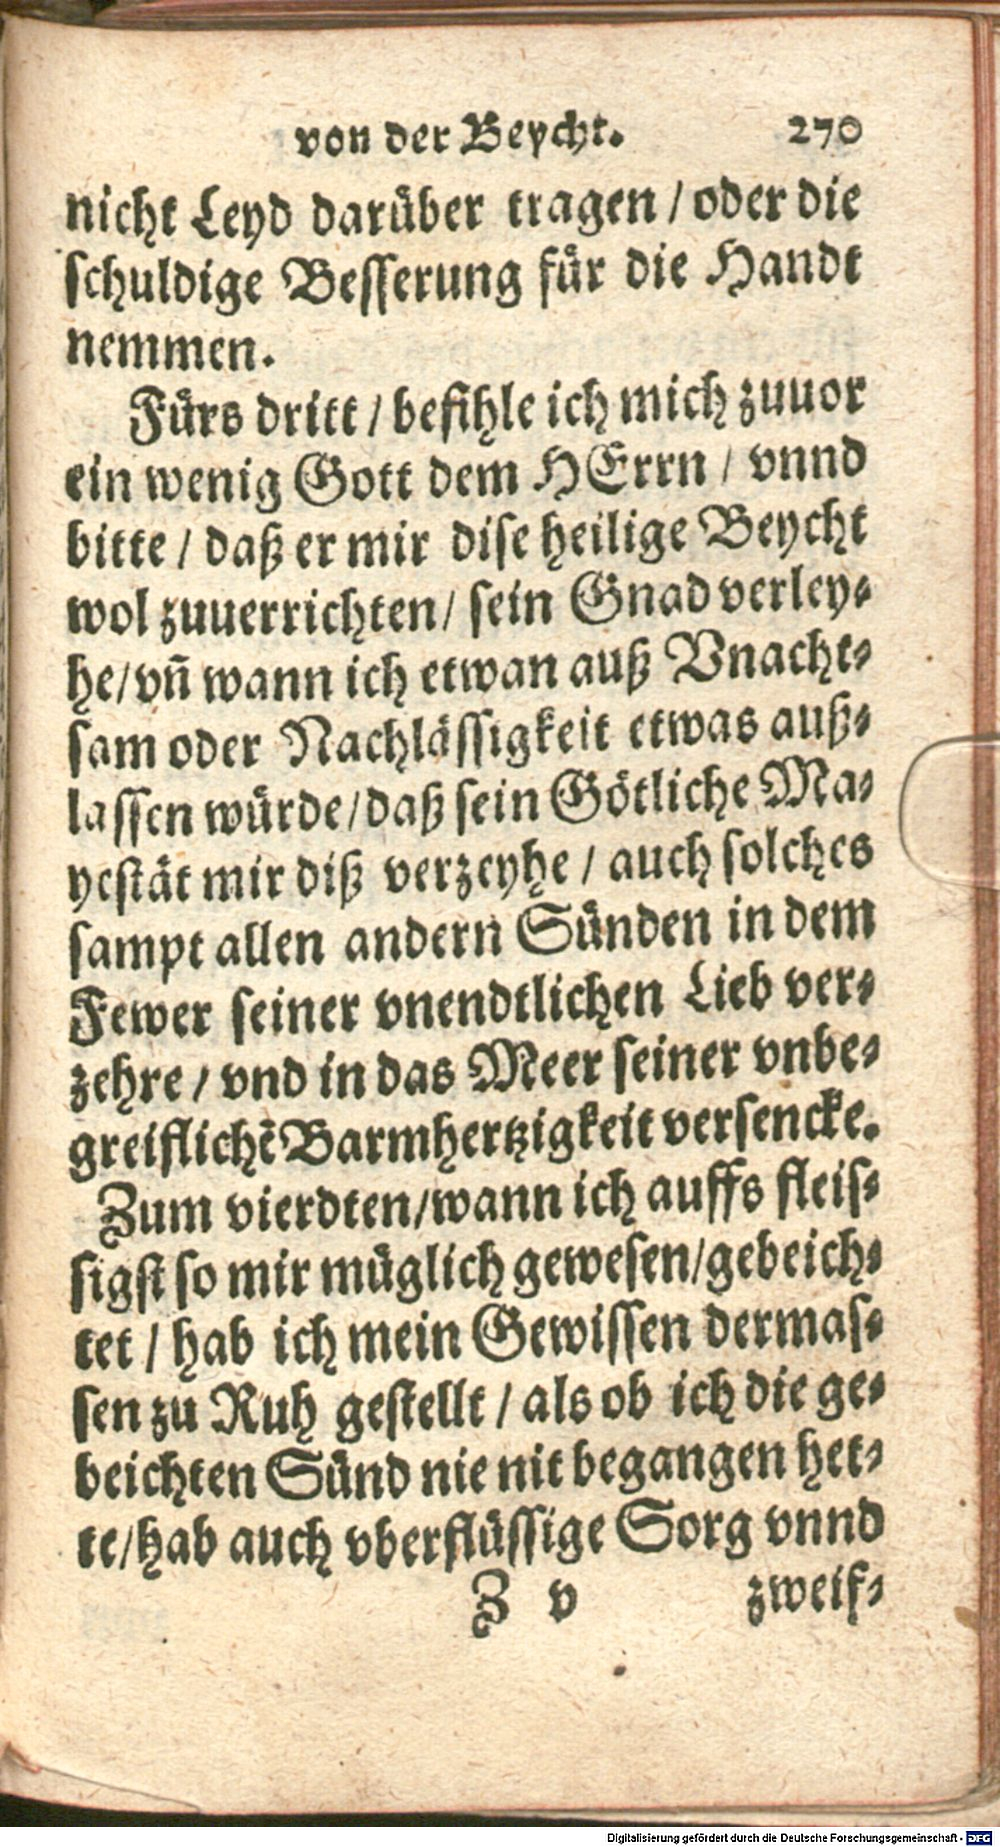 von der Beycht. 270
nicht Leyd darüber tragen / oder die
schuldige Besserung für die Handt
nemmen.
Fürs dritt / befihle ich mich zuuor
ein wenig Gott dem HErrn / vnnd
bitte / daß er mir dise heilige Beycht
wol zuuerrichten / sein Gnad verley-
he / vñ wann ich etwan auß Vnacht-
sam oder Nachlässigkeit etwas auß-
lassen würde / daß sein Götliche Ma-
yestät mir diß verzeyhe / auch solches
sampt allen andern Sünden in dem
Fewer seiner vnendtlichen Lieb ver-
zehre / vnd in das Meer seiner vnbe-
greiflichẽ Barmhertzigkeit versencke.
Zum vierdten / wann ich auffs fleis-
sigst so mir müglich gewesen / gebeich-
tet / hab ich mein Gewissen dermas-
sen zu Ruh gestellt / als ob ich die ge-
beichten Sünd nie nit begangen het-
te / hab auch vberflüssige Sorg vnnd
Z v zweif-
Digitalisierung gefördert durch die Deutsche Forschungsgemeinschaft - DFG